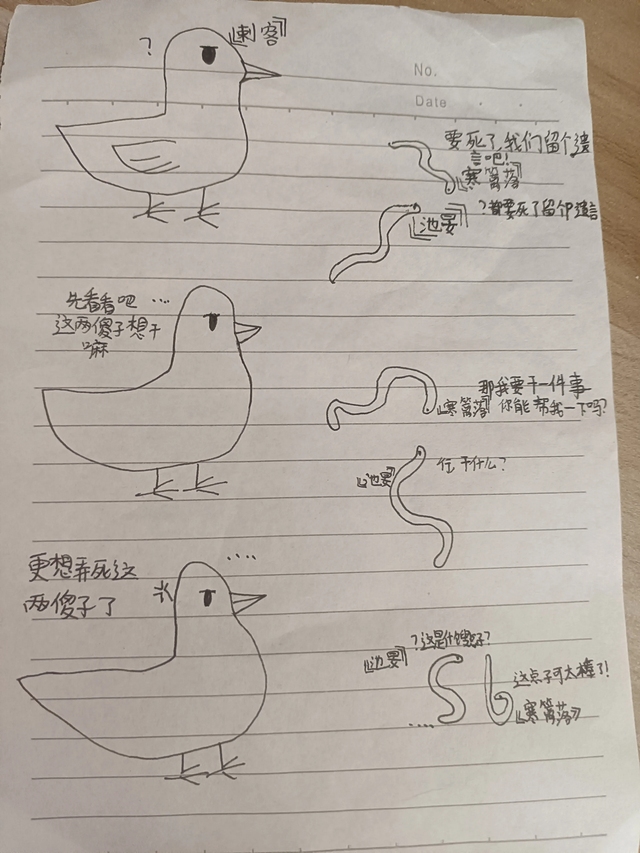 ?
『刺客』
No.
Date
要死了,我们留个遗
言吧!
『寒篱落』
?都要死了留个遗言
『池晏』
先看看吧...
这两傻子想干
嘛
那我要干一件事
『寒篱落』你能帮我一下吗?
『池晏』
行,干什么?
....
更想弄死这
两傻子了
?这是什么傻子?
『池晏』
SB
这点子可太棒了!
『寒篱落』
....